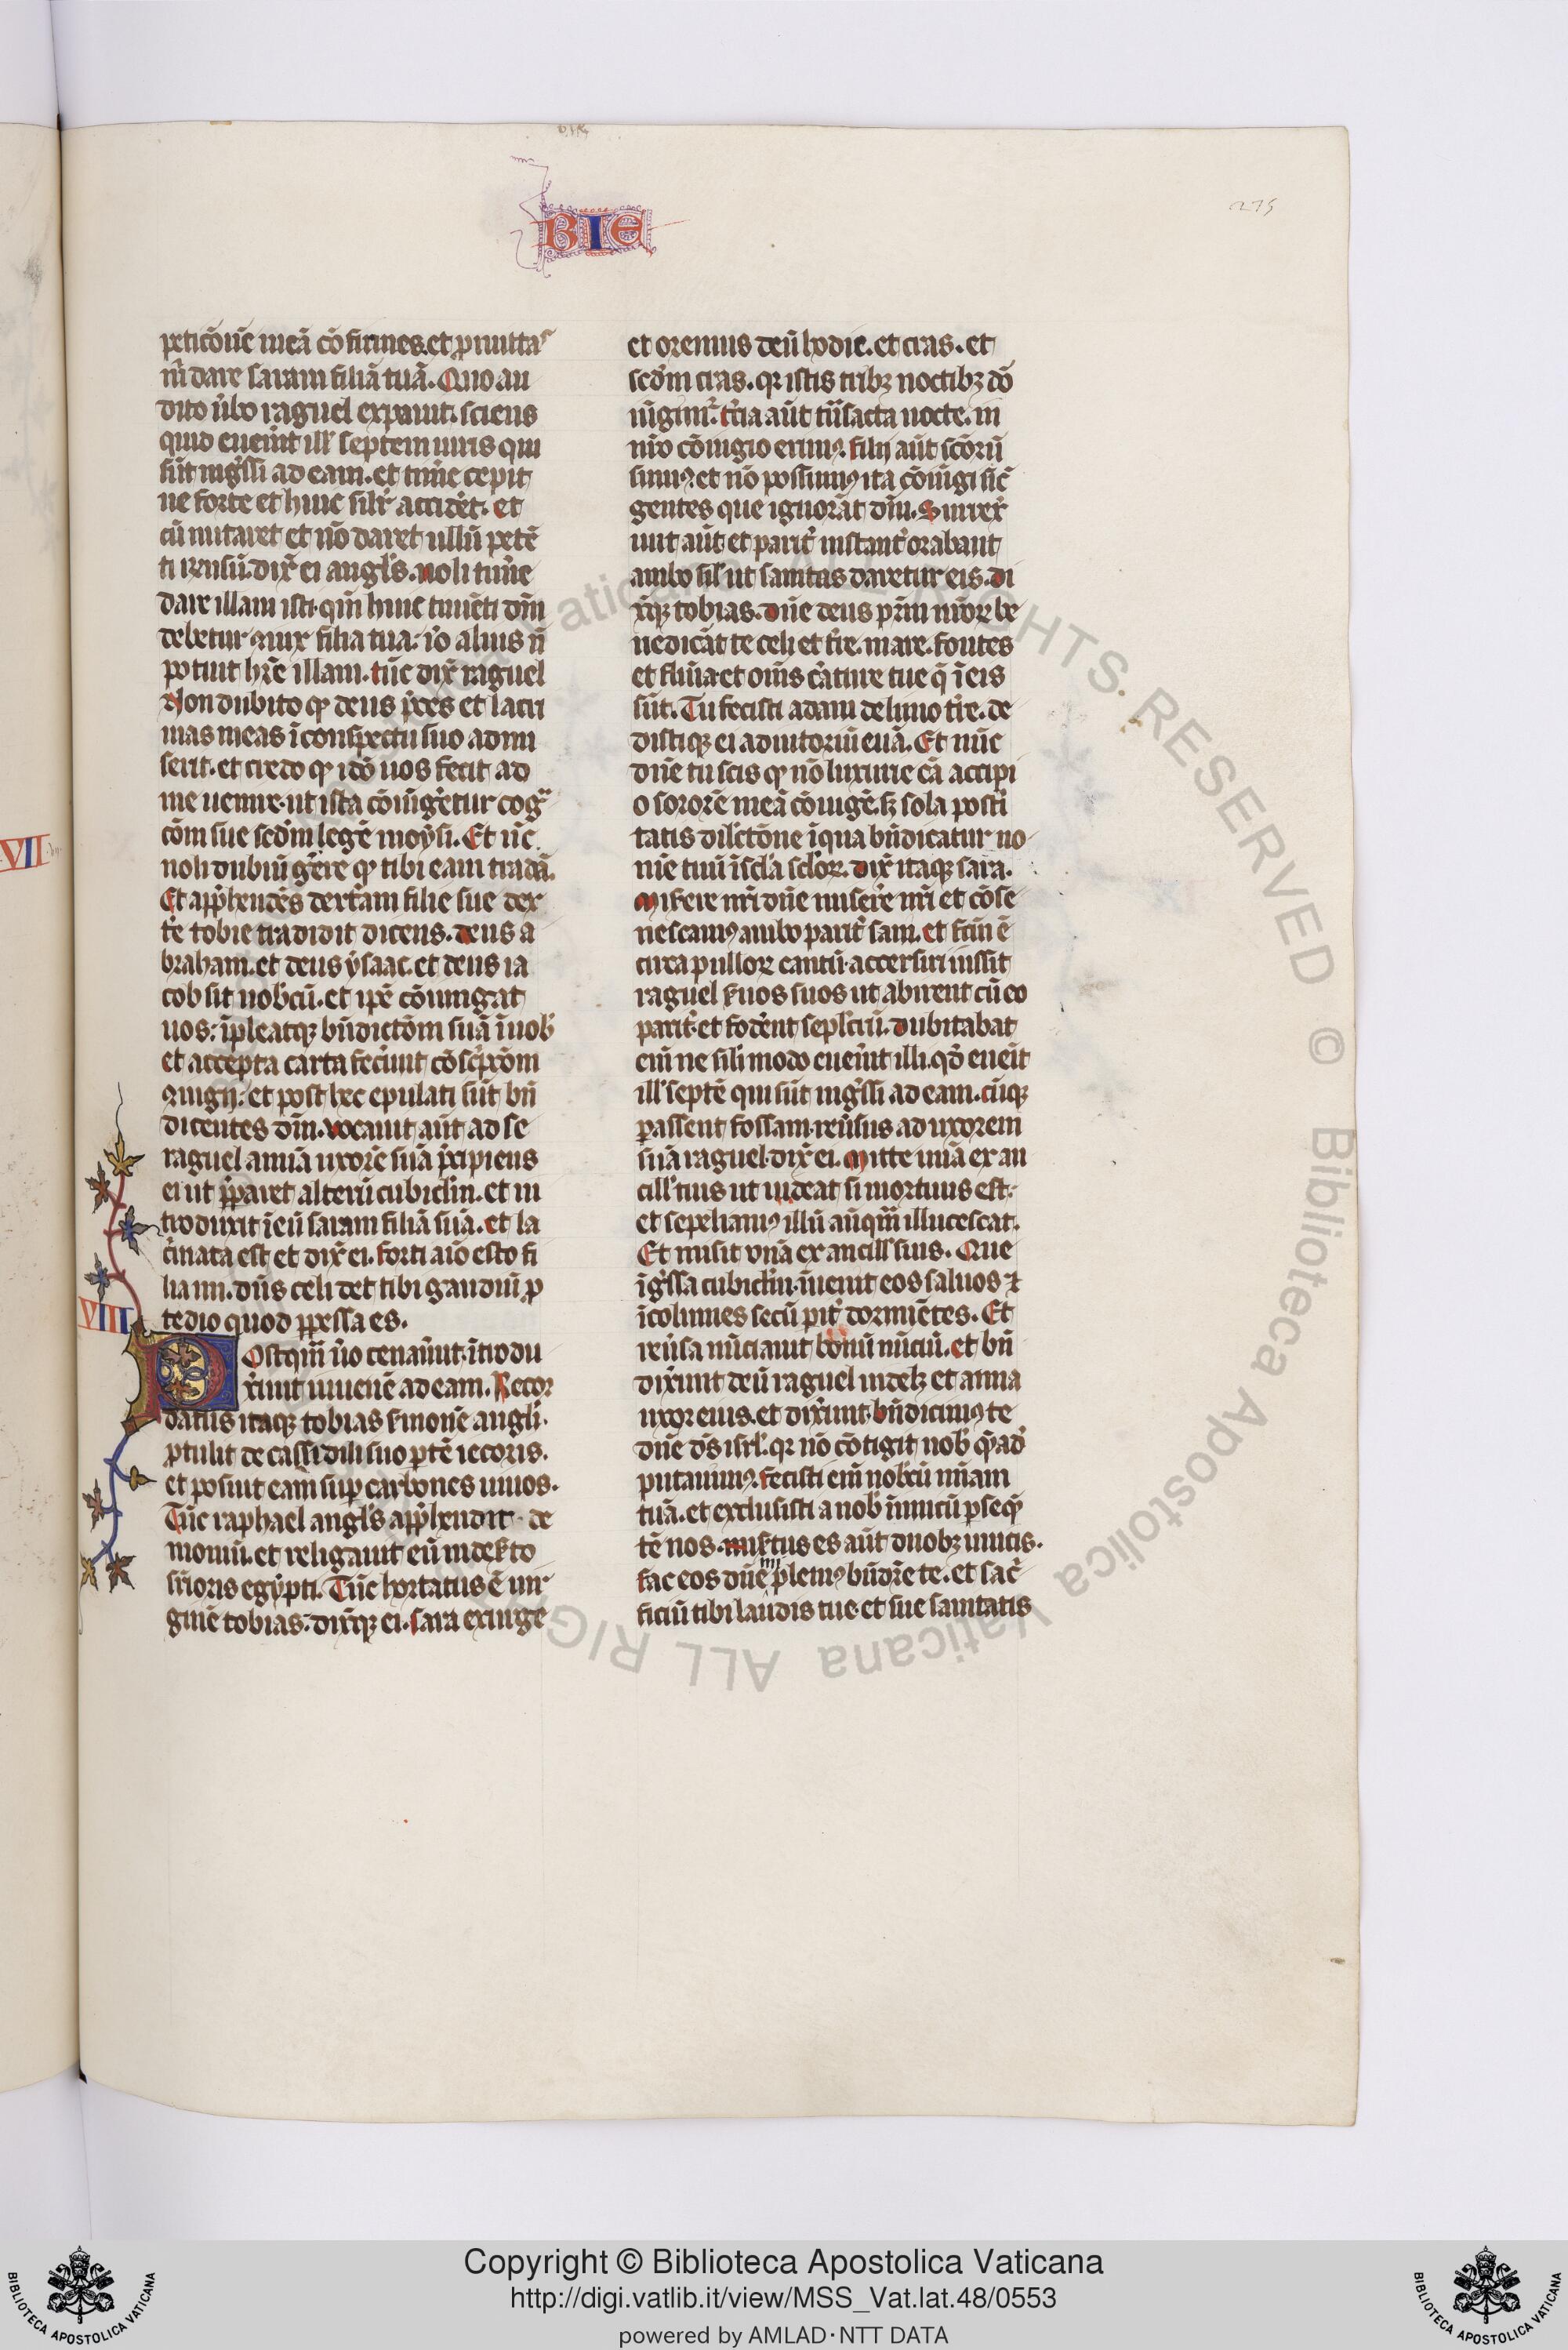 BIE
275
peticõnē meã cõfirmes. et ꝓmittas
m̃ dare saram filiã tuã. Quo au
dito ũbo raguel expauit. sciens
quid eueñit ill' septem uiris qui
sũt ingr̃ssi ad eam. et tim̃e cepit
ne forte et huic silr̃ accidẽt. et
cũ nutaret et nõ daret ullũ petẽ
ti rensũ. dix̃ ei angl's. Noli tim̃e
dare illam isti. qm̃ huic timẽti dm̃
debetur ꝯiux filia tua: iõ alius ñ
potuit hr̃e illam. tũc dix̃ raguel
Non dubito qꝫ deus p̃ces et lacri
mas meas ĩ conspectu suo admi
serit. et credo qꝫ idõ uos fecit ad
me uenire. ut ista cõiũgẽtur cog̃
cõm sue scd̃m legẽ moysi. Et nc̃
noli dubiũ ger̃e qꝫ tibi eam tradã.
Et app̃hendẽs dext̃am filie sue dex
tẽ tobie tradidit dicens. deus a
braham. et deus ysaac. et deus ia
cob sit nob'cũ. et ip̃e cõiungat
uos: ĩpleatqꝫ bñdictõm suã ĩ uob'
et accepta carta fec̃unt cõsc̃pcõm
ꝯiugij. et post hec epulati sũt bñ
dicentes dm̃. vocauit aũt ad se
raguel annã uxorẽ suã p̃cipiens
ei ut p̃pararet alterũ cubicl'm. et in
troduxit ĩ eũ saram filiã suã. et la
c̃mata est et dix̃ ei. forti aĩo esto fi
lia mi. dñs celi det tibi gaudiũ ꝓ
tedio quod ꝑpessa es.
VIII
Postqm̃ ũo cenauũt. ĩtrodu
xũnt iuuenẽ ad eam. Recor
datus itaqꝫ tobias s̃monẽ angli.
ꝓtulit de cassidili suo ꝑtẽ iecoris.
et posuit eam suꝑ carbones uiuos.
Tũc raphael angl's app̃hendit de
moniũ. et religauit eũ in des̃to
suꝑioris egypti. Tũc hortatus ẽ uir
ginẽ tobias. dix̃qꝫ ei. Sara exurge
et oremus deũ hodie. et cras. et
scd̃m cras. qr istis tribꝫ noctibꝫ dõ
iũgimr̃. t̃cia aũt tñsacta nocte. in
nr̃o cõiugio erimꝰ. filij aũt scõrũ
sumꝰ. et nõ possumꝰ ita cõiũgi sic̃
gentes que ignorãt dm̃. Surrex̃
unt aũt et parit̃ instant̃ orabant
ambo sil' ut sanitas daretur eis. di
x̃qꝫ tobias. dñe deus pr̃m nr̃oꝝ be
nedicãt te celi et t̃re. mare. fontes
et flũia. et om̃s c̃ature tue q̃ ĩ eis
sũt. Tu fecisti adam de limo t̃re. de
distiqꝫ ei adiutoriũ euã. Et nũc
dñe tu scis qꝫ nõ luxurie cã accipi
o sororẽ meã cõiugẽ. sꝫ sola post̃i
tatis dil'ctõne ĩ qua bñdicatur no
mẽ tuũ ĩ scl'a scl'oꝝ. Dix̃ itaqꝫ sara.
Miserere nr̃i dñe miser̃e nr̃i et cõse
nescamꝰ ambo parit̃ sani. et fcm̃ ẽ
circa pulloꝝ cantũ. accersiri iussit
raguel s̃uos suos ut abirent cũ eo
parit̃ et foder̃nt sepl'crũ. dubitabat
em̃ ne sili modo eueñit illi. qd̃ eueñit
ill' septẽ qui sũt ingr̃ssi ad eam. cũqꝫ
ꝑassent fossam. reũsus ad uxorem
suã raguel. dix̃ ei. Mitte unã ex an
cill' tuis ut uideat si mortuus est.
et sepeliamꝰ illũ añqm̃ illucescat.
Et misit vnã ex ancill' suis. Que
ĩgr̃ssa cubicl'm. ĩuenit eos saluos ⁊
ĩcolumes secũ pit̃ dormiẽtes. Et
reũsa nũciauit bonũ nũciũ. et bñ
dix̃unt deũ raguel uidelꝫ et anna
uxor eius. et dix̃unt. bñdicimꝰ te
dñe ds̃ isrl'. qr nõ cõtigit nob' qm̃ad
putauimꝰ. fecisti em̃ nob'cũ mĩam
tuã. et exclusisti a nob' ĩimicũ ꝑseqñ
tẽ nos. mis̃tus es aũt duobꝫ unicis.
fac eos dñe plenius bñdr̃e te. et sac̃
ficiũ tibi laudis tue et sue sanitatis
VII
Copyright © Biblioteca Apostolica Vaticana
http://digi.vatlib.it/view/MSS_Vat.lat.48/0553
powered by AMLAD·NTT DATA
BIBLIOTECA APOSTOLICA VATICANA
BIBLIOTECA APOSTOLICA VATICANA